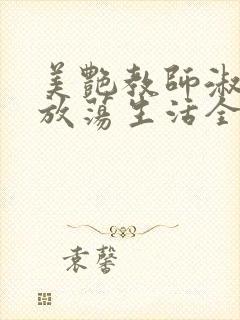 美艷教師淑
放蕩生活全
袁馨